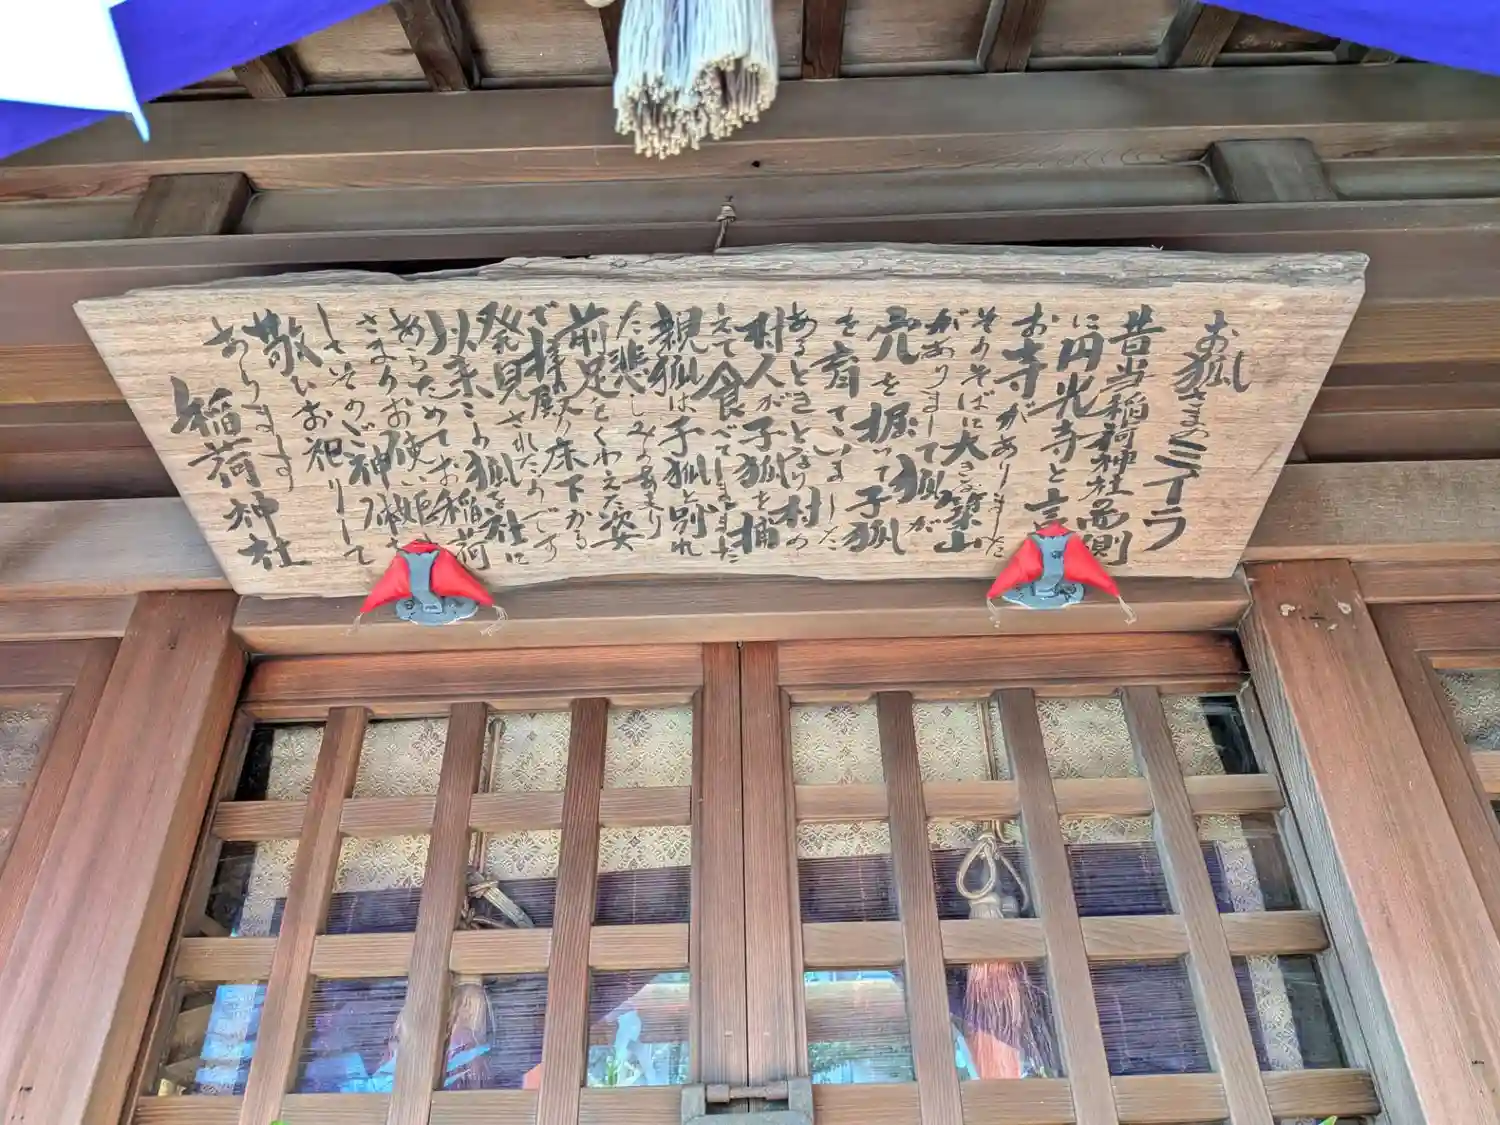 お狐さまのミイラ
昔当稲荷神社西側
に円光寺と言
お寺がありました
そのそばに大きな築山
がありまして狐が
穴を掘って子狐
を育ていました
あるときとなり村の
村人が子狐を捕
えて食べてしまいました
親狐は子狐と別れ
た悲しみのあまり
前足をくわえた姿
で拝殿の床下から
発見されたのです
以来この狐を社に
あらためてお稲荷
さまのお使い姫
としてそのご神
敬いお祀りして
おります
稲荷神社